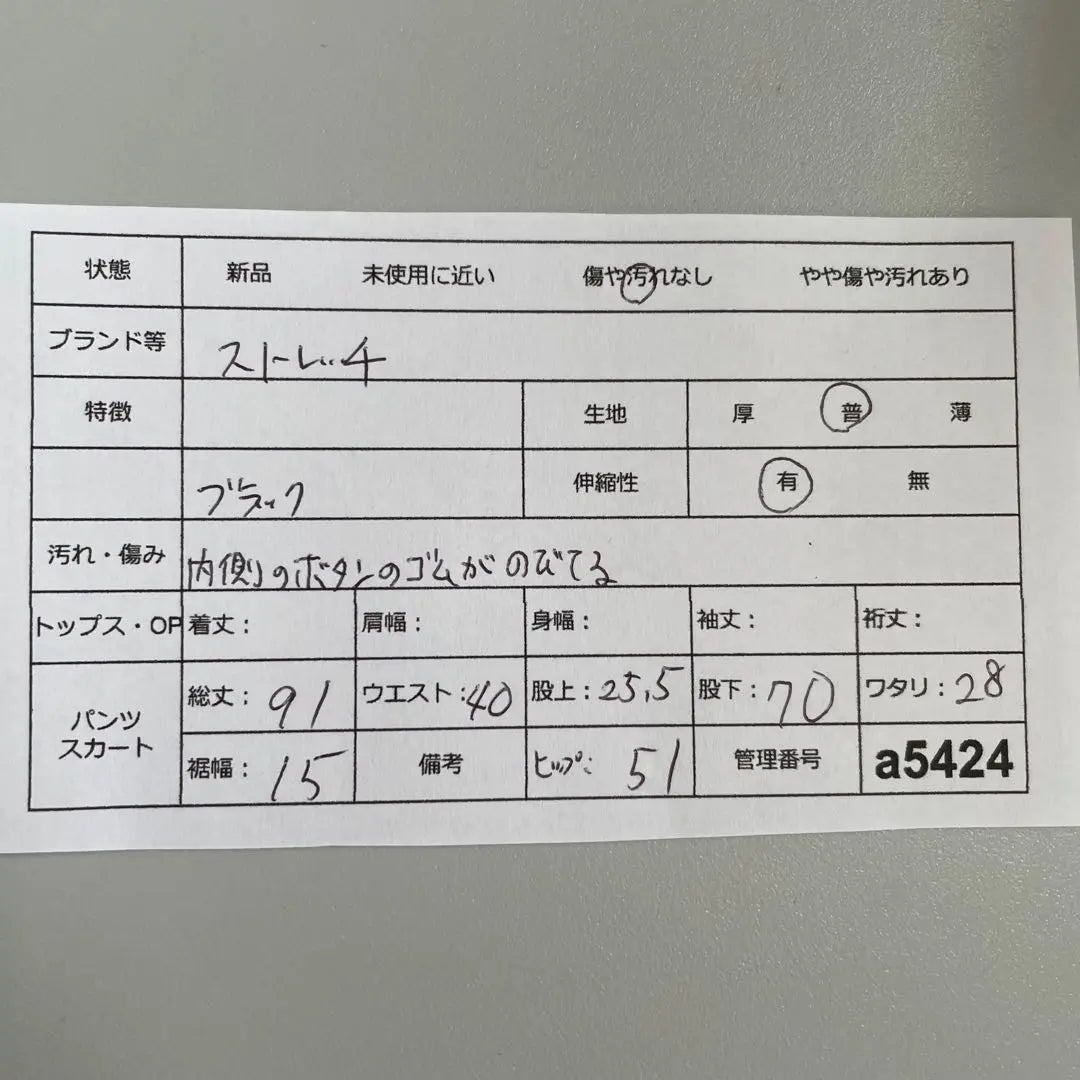 状態 新品 未使用に近い 傷や汚れなし やや傷や汚れあり
ブランド等 ストレッチ
特徴 生地 厚 普 薄
ブラック 伸縮性 有 無
汚れ・傷み 内側のボタンのゴムがのびてる
トップス・OP 着丈： 肩幅： 身幅： 袖丈： 裄丈：
パンツ スカート 総丈：91 ウエスト：40 股上：25,5 股下：70 ワタリ：28
裾幅：15 備考 ヒップ：51 管理番号 a5424